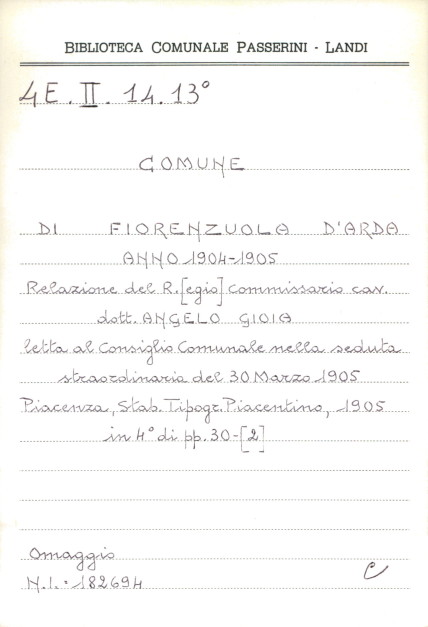 BIBLIOTECA COMUNALE PASSERINI - LANDI
4E. II. 14. 13°
COMUNE
DI FIORENZUOLA D'ARDA
ANNO 1904-1905
Relazione del R.[egio] Commissario cav.
dott. ANGELO GIOIA
letta al Consiglio Comunale nella seduta
straordinaria del 30 Marzo 1905
Piacenza, Stab. Tipogr. Piacentino, 1905
in 4° di pp. 30-[2]
Omaggio
N.I.: 182694
C